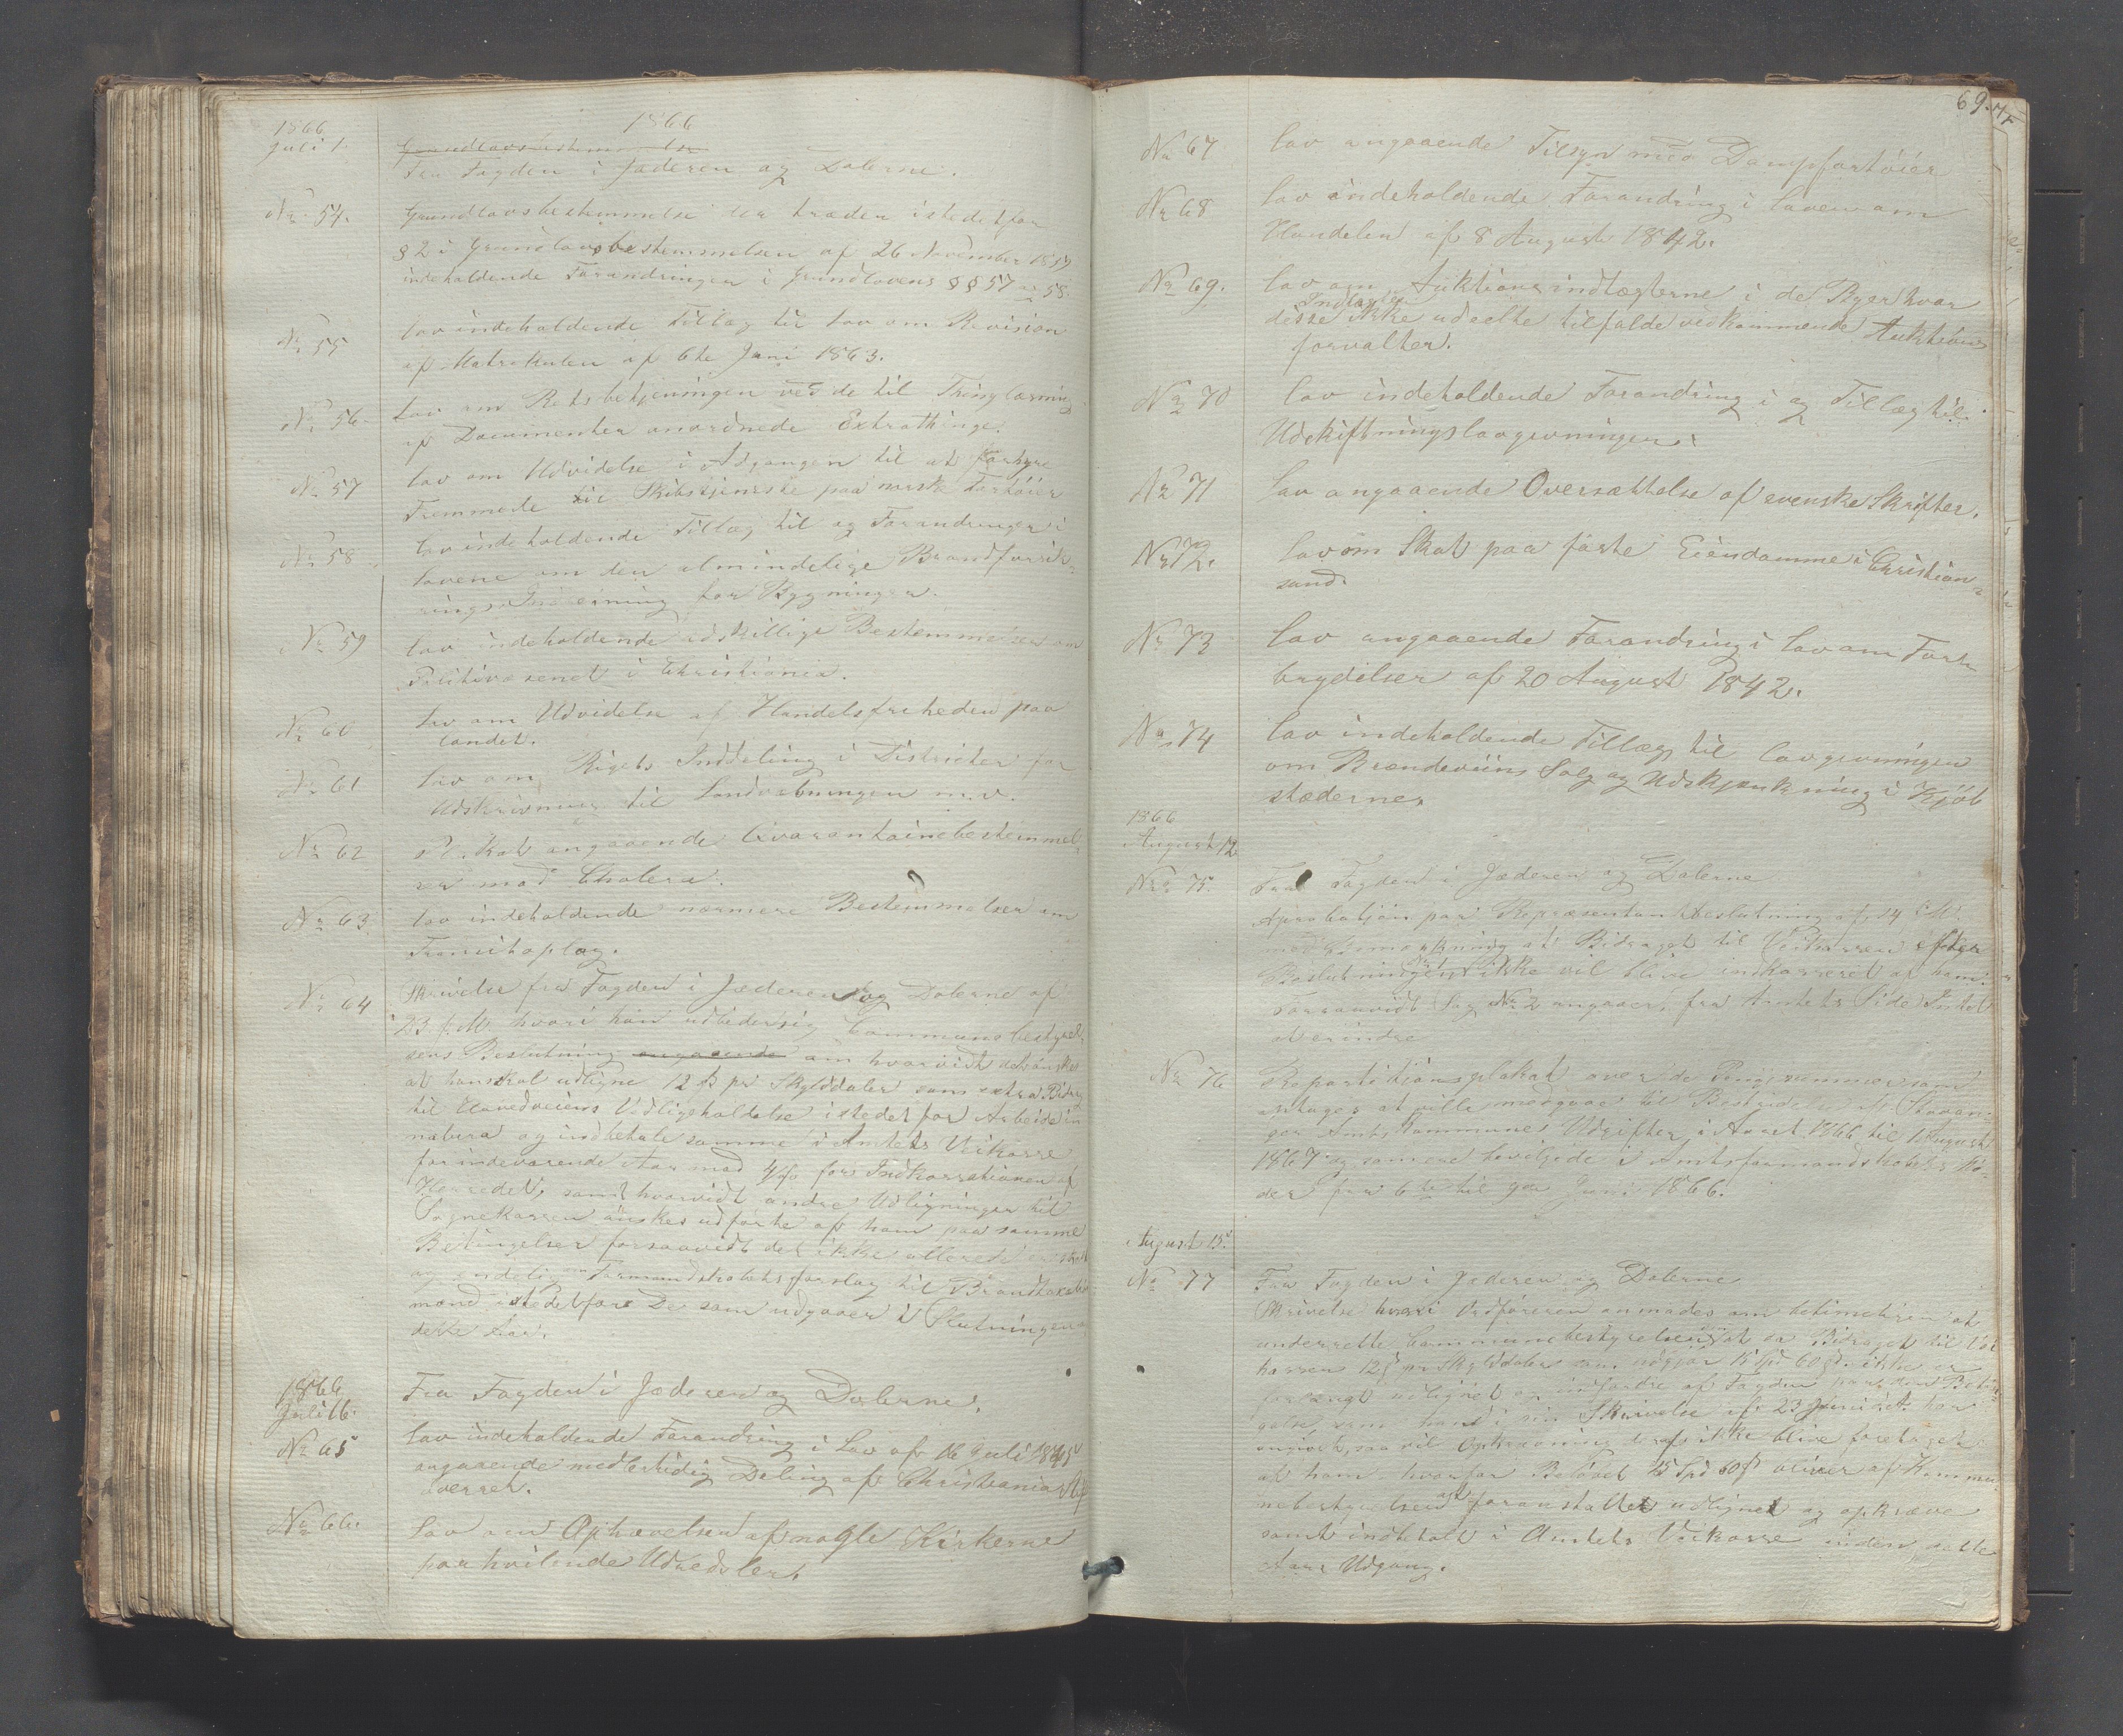 1866
1866
Juli 1.
Grundlovsbestemmelse
Fra Fogden i Jæderen og Dalerne.
No 54. Grundlovsbestemmelse der træder istedetfor
§ 2 i Grundlovsbestemmelsen af 26 November 1859
indeholdende Forandringer i Grundlovens §§ 57 og 58.
No 55 Lov indeholdende Tillæg til Lov om Revision
af Matrikulen af 6te Juni 1863.
No 56. Lov om Retsbetjeningen ved de til Thinglæsning
af Documenter anordnede Extrathinge.
No 57 Lov om Udvidelse i Adgangen til at forhyre
Fremmede til Skibstjeneste paa norske Fartöier
No 58 Lov indeholdende Tillæg til og Forandringer i
Lovene om den almindelige Brandforsik-
rings Indretning for Bygninger.
No 59 Lov indeholdende adskillige Bestemmelser om
Politivæsenet i Christiania.
No 60 Lov om Udvidelse af Handelsfriheden paa
Landet.
No 61 Lov om Rigets Inddeling i Districter for
Udskrivning til Landvæbningen m.v.
No 62 Plakat angaaende Qvarantainebestemmel-
ser mod Cholera.
No 63 Lov indeholdende nærmere Bestemmelser om
Transitoplag.
No 64 Skrivelse fra Fogden i Jæderen og Dalerne af
23 f. M. hvori han udbeder sig Communebestyrel-
sens Beslutning angaaende om hvorvidt det önskes
at han skal udligne 12 ß pr Skylddaler som extra Bidrag
til Hovedveiens Vedligeholdelse istedet for Arbeide in
natura og indbetale samme i Amtets Veikasse
for indeværende Aar mod 4 % for Indkassationen af
Herredet, samt hvorvidt andre Udligninger til
Sognekassen önskes udförte af ham paa samme
Betingelser forsaavidt det ikke allerede er skeet
og endelig om Formandskabets forslag til Brandtaxations
mænd istedetfor De som udgaaer i Slutningen af
dette Aar.
1866
Juli 16.
Fra Fogden i Jæderen og Dalerne.
No 65 Lov indeholdende Forandring i Lov af 16 Juli 1845
angaaende midlertidig Deling af Christiania Stif
tsoverret.
No 66. Lov om Ophævelsen af nogle Kirkerne
paa hvilende Udredsler.
69.
No 67 Lov angaaende Tilsyn med Dampfartöier
No 68 Lov indeholdende Forandring i Loven om
Handelen af 8 August 1842.
No 69. Lov om Auktionsindtægterne i de Byer hvor
Indtægter
disse ikke udeelte tilfalde vedkommende Auktions
forvalter.
No 70 Lov indeholdende Forandring i og Tillæg til
Udskiftningslovgivningen.
No 71 Lov angaaende Oversættelse af svenske Skrifter.
No 72. Lov om Skat paa faste Eiendomme i Christian-
sand.
No 73 Lov angaaende Forandring i Lov om For-
brydelser af 20 August 1842.
No 74 Lov indeholdende Tillæg til Lovgivningen
om Brændeviins Salg og Udskjænkning i Kjöb
stæderne.
1866
August 12
No 75. Fra Fogden i Jæderen og Dalerne
Aprobatjon paa Repræsentantbeslutning af 14 f. M.
med Bemærkning at Bidraget til Veikassen efter
Beslutningen ikke vil blive indkasseret af ham.
Forsaavidt Sag No 2 angaaer, fra Amtets Side Intet
at erindre
No 76 Repartitionsplakat over de Pengesummer som
antages at ville medgaae til Bestridelse af Stavan-
ger Amtskommunes Udgifter i Aaret 1866 til 1 August
1867 og som ere bevilgede i Amtsformandskabets Mö-
der fra 6te til 9de Juni 1866.
August 15.
No 77 Fra Fogden i Jæderen og Dalerne
Skrivelse hvori Ordföreren anmodes om betimeligen at
underrette Communebestyrelsen om at da Bidraget til Vei
kassen 12 ß pr Skylddaler som udgjör 15 Spd 60 ß ikke er
forlangt udlignet og indfordre af Fogden paa den Betin-
gelse som han i sin Skrivelse af 23 Juni d. A. har
angivet, saa vil Opkrævning deraf ikke blive foretaget
af ham hvorfor Belöbet 15 Spd 60 ß bliver af Kommu
nebestyrelsen at foranstalte udlignet og opkræve
samt indbetalt i Amtets Veikasse inden dette
Aars Udgang.